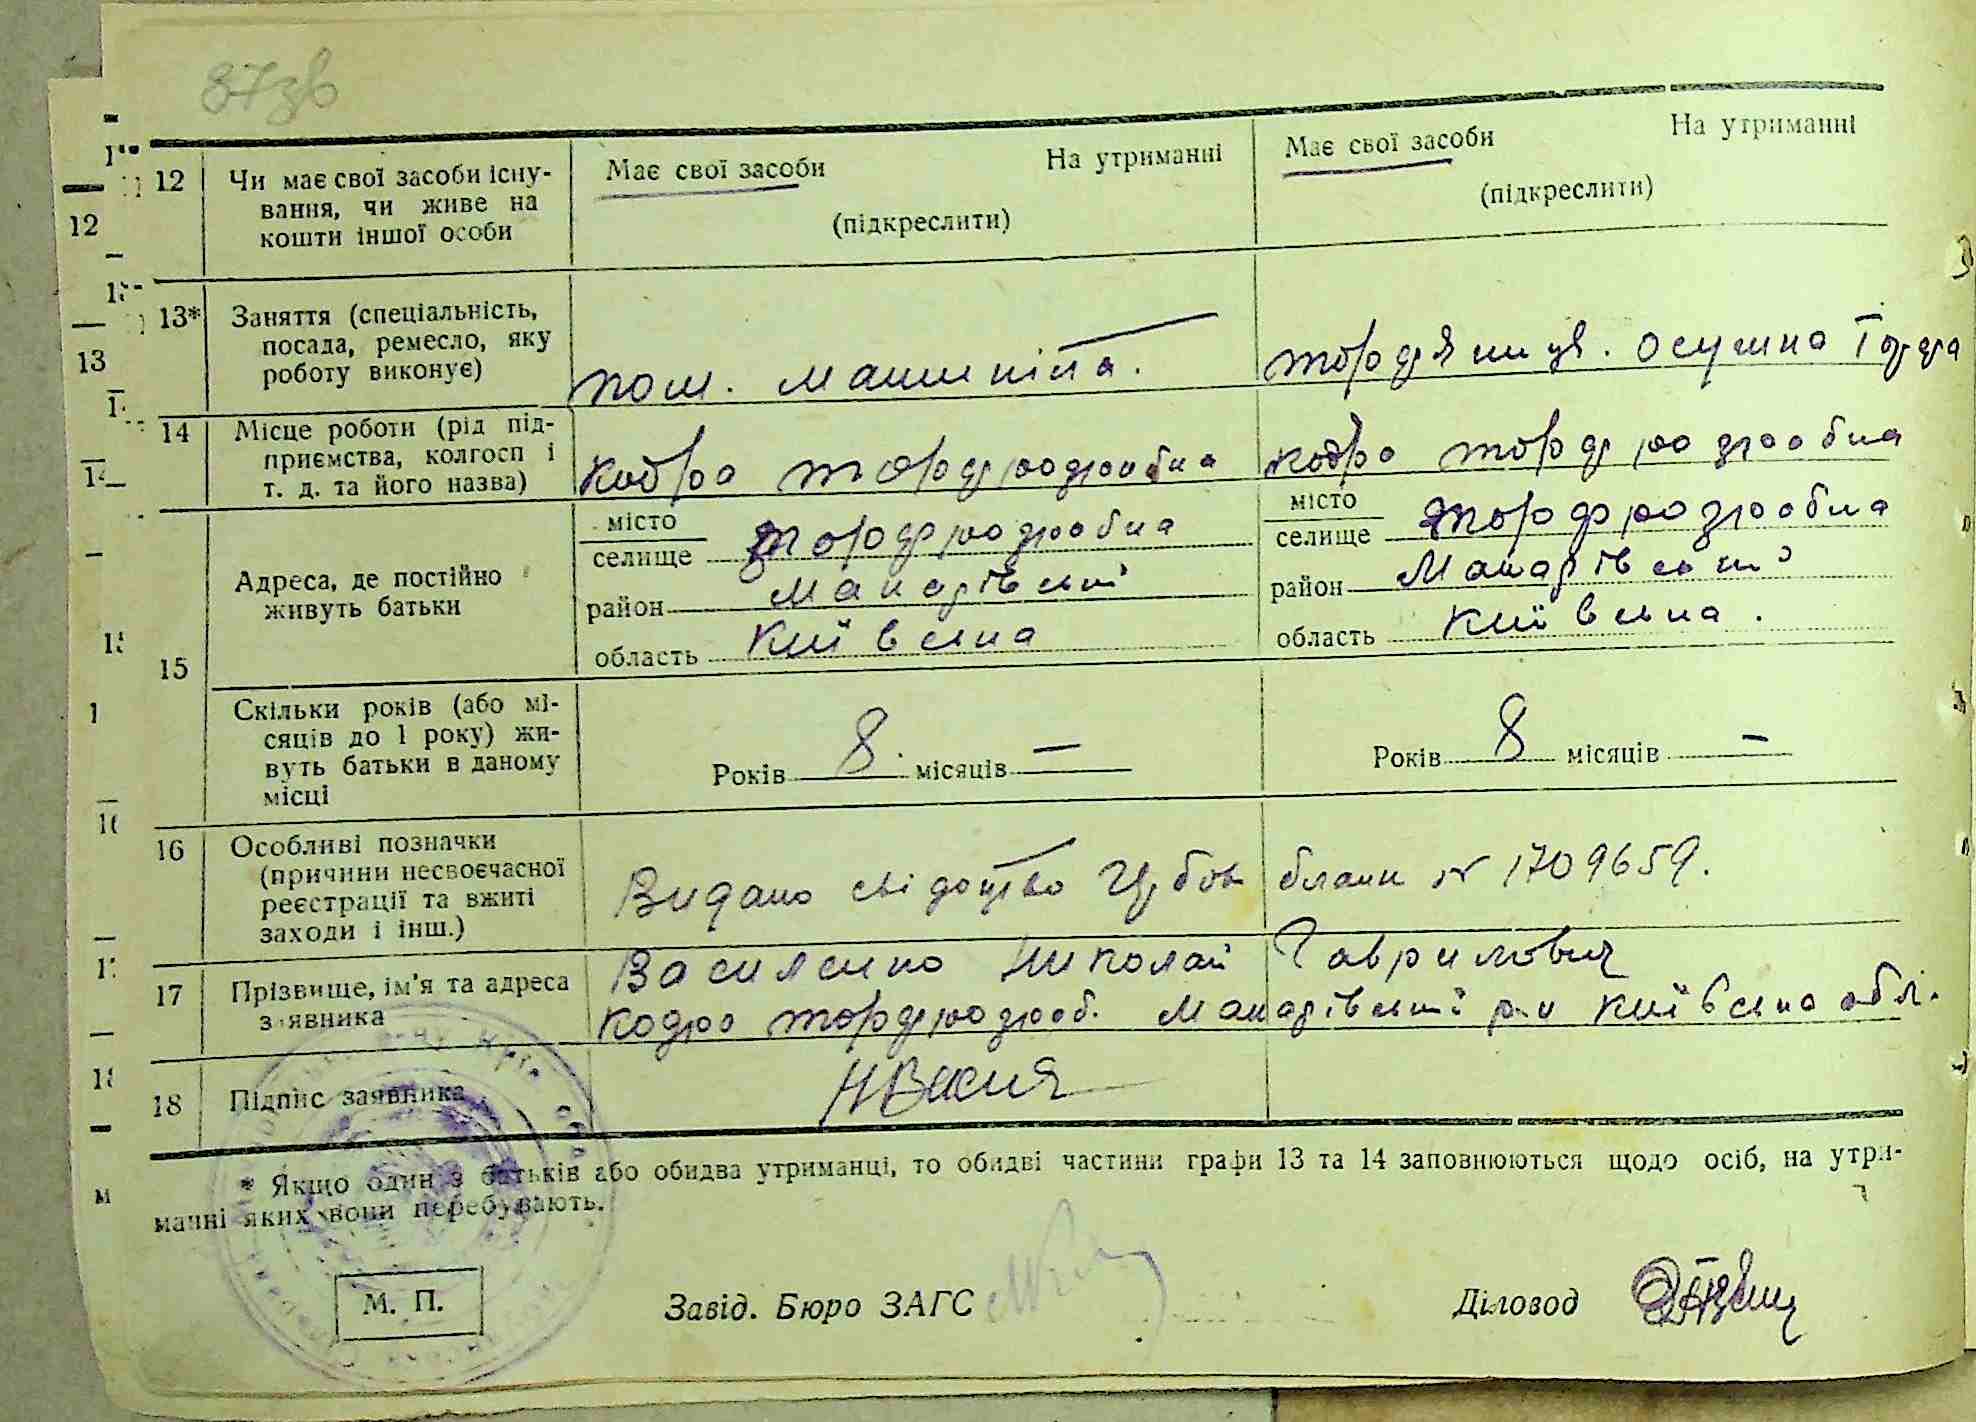 87зв
12 Чи має свої засоби існу-
вання, чи живе на
кошти іншої особи
Має свої засоби На утриманні
(підкреслити)
Має свої засоби На утриманні
(підкреслити)
13* Заняття (спеціальність,
посада, ремесло, яку
роботу виконує)
пом. машиніста.
14 Місце роботи (рід під-
приємства, колгосп і
т. д. та його назва)
торфорозробка
торфорозробка
15 Адреса, де постійно
живуть батьки
місто
селище торфорозробка
район Макарівський
область Київська
місто
селище торфорозробка
район Макарівський
область Київська.
Скільки років (або мі-
сяців до 1 року) жи-
вуть батьки в даному
місці
Років 8 місяців —
Років 8 місяців —
16 Особливі позначки
(причини несвоєчасної
реєстрації та вжиті
заходи і інш.)
Видано свідоцтво бланк № 1709659.
17 Прізвище, ім'я та адреса
заявника
Василенко Николай Гаврилович
торфорозроб. Макарівський р-н Київська обл.
18 Підпис заявника
* Якщо один з батьків або обидва утриманці, то обидві частини графи 13 та 14 заповнюються щодо осіб, на утри-
манні яких вони перебувають.
М. П.
Завід. Бюро ЗАГС
Діловод